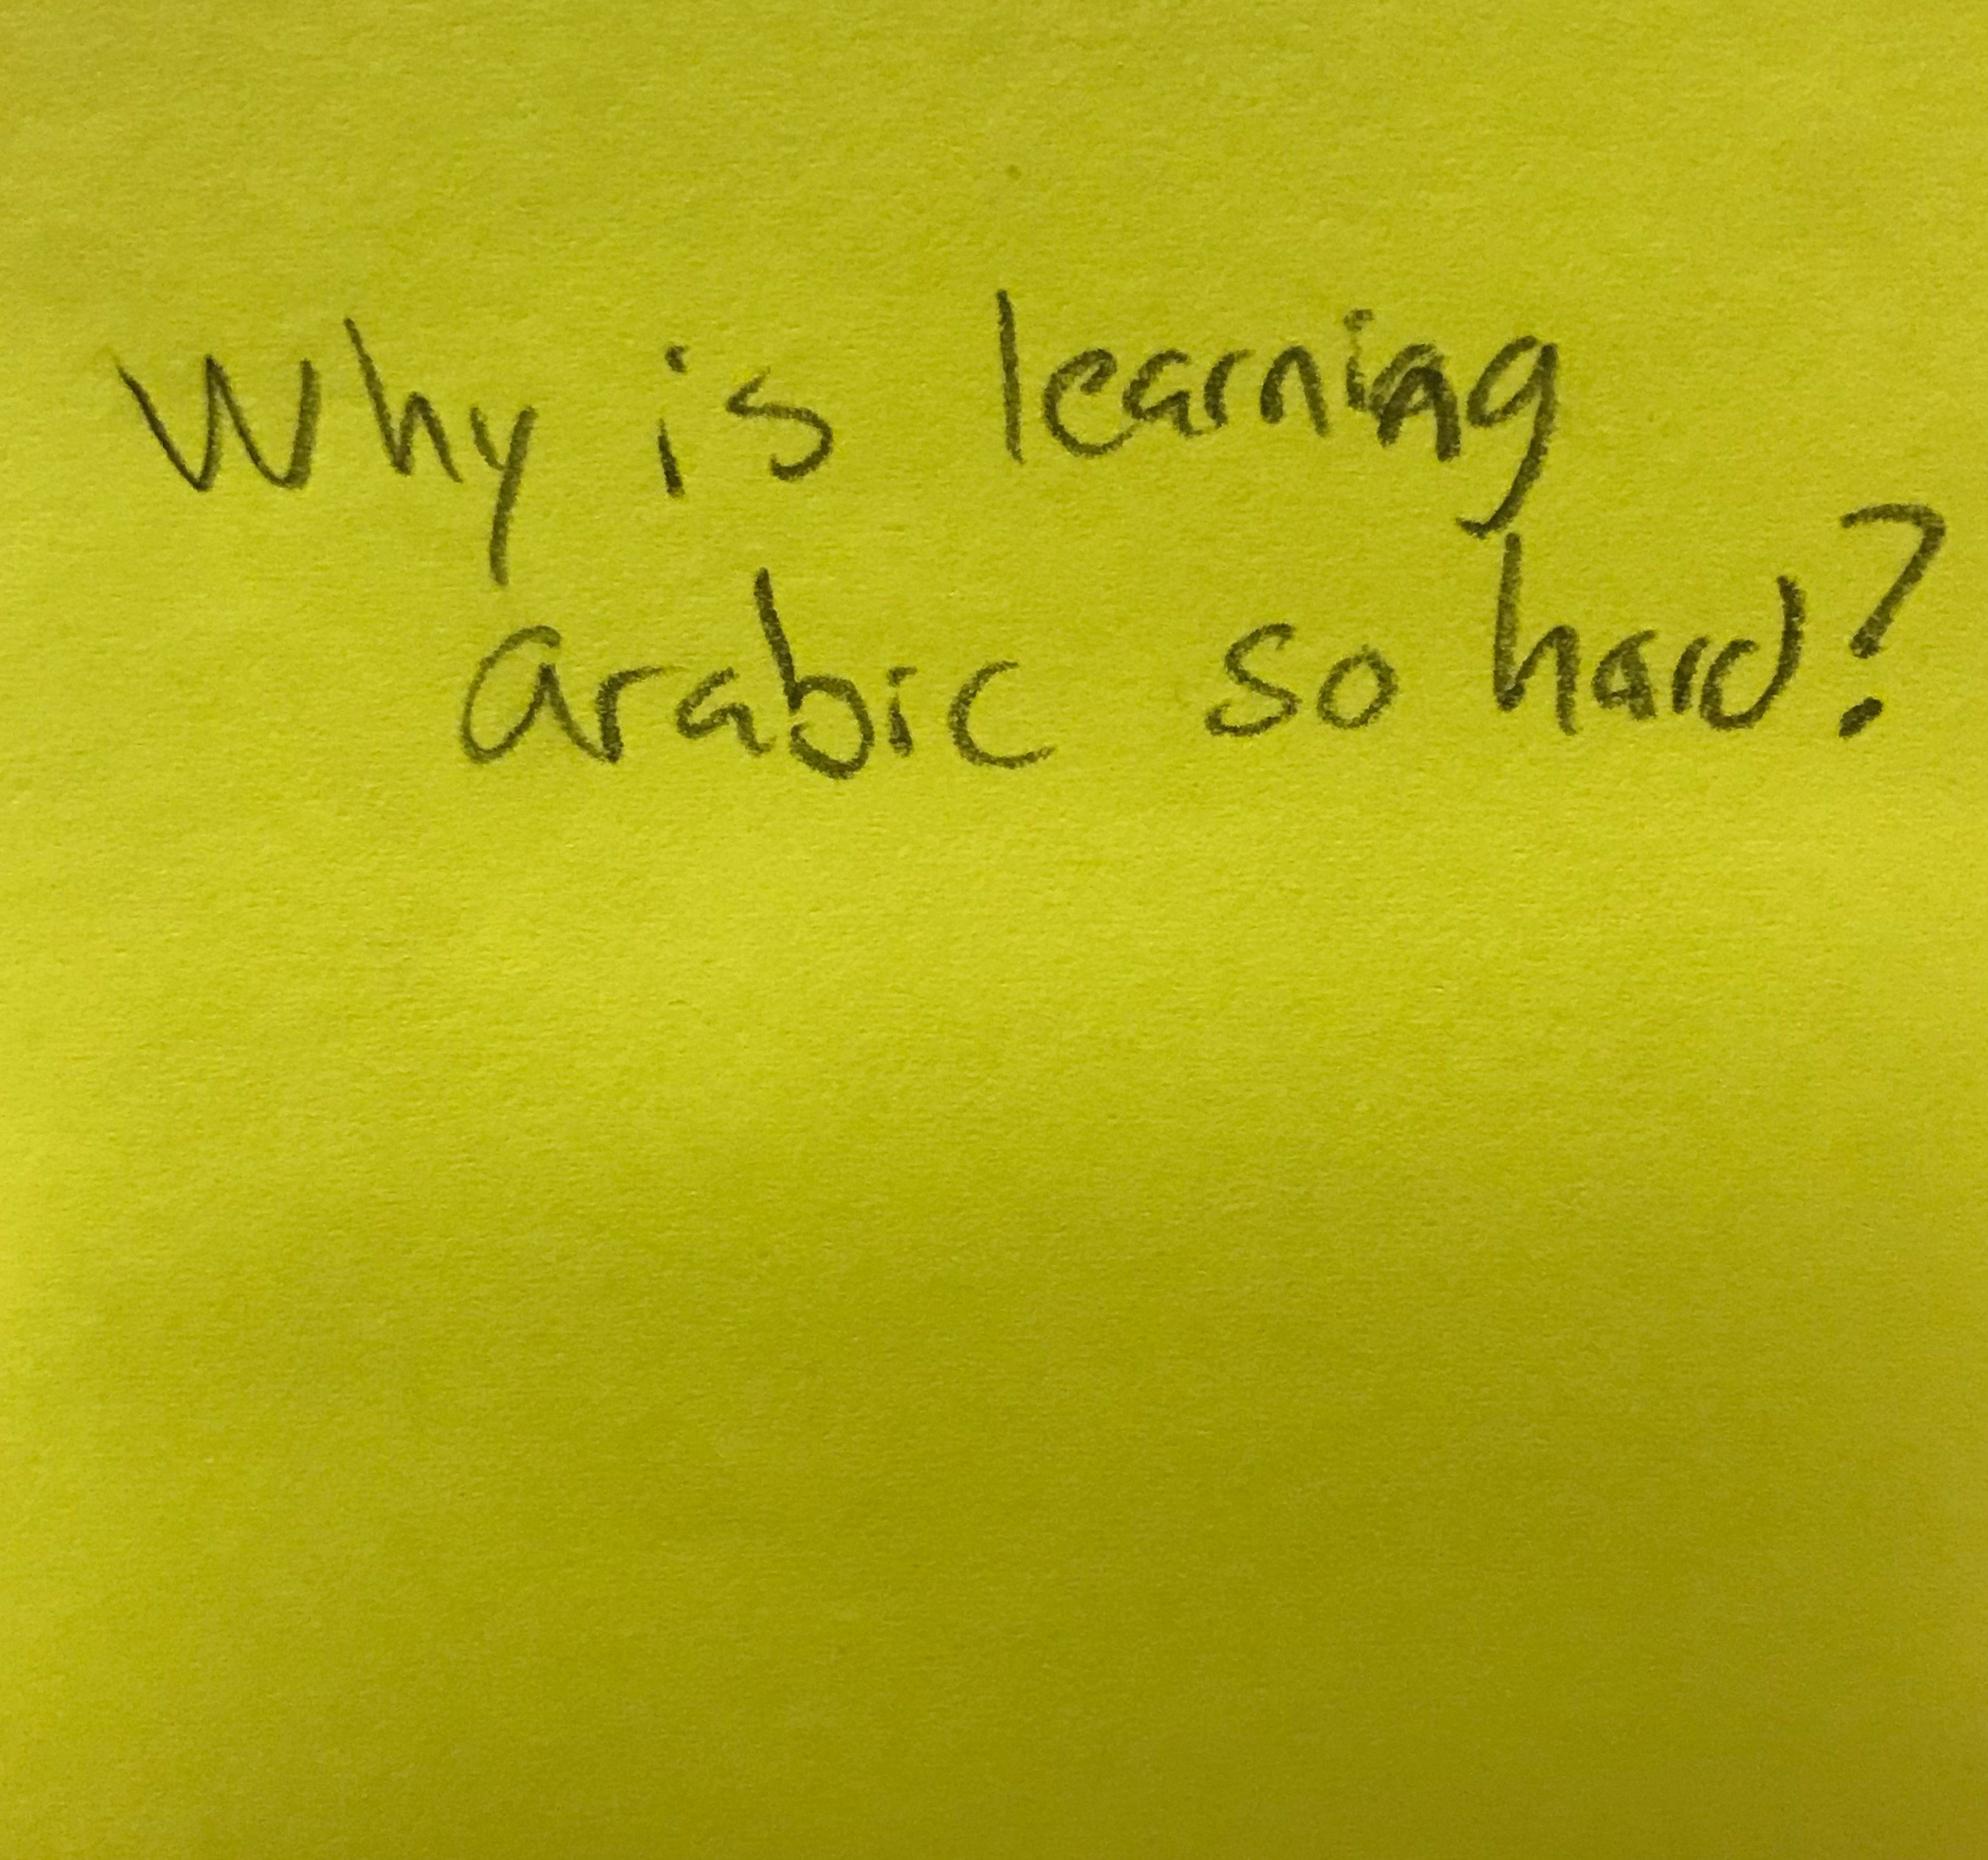 Why is learning
arabic so hard?